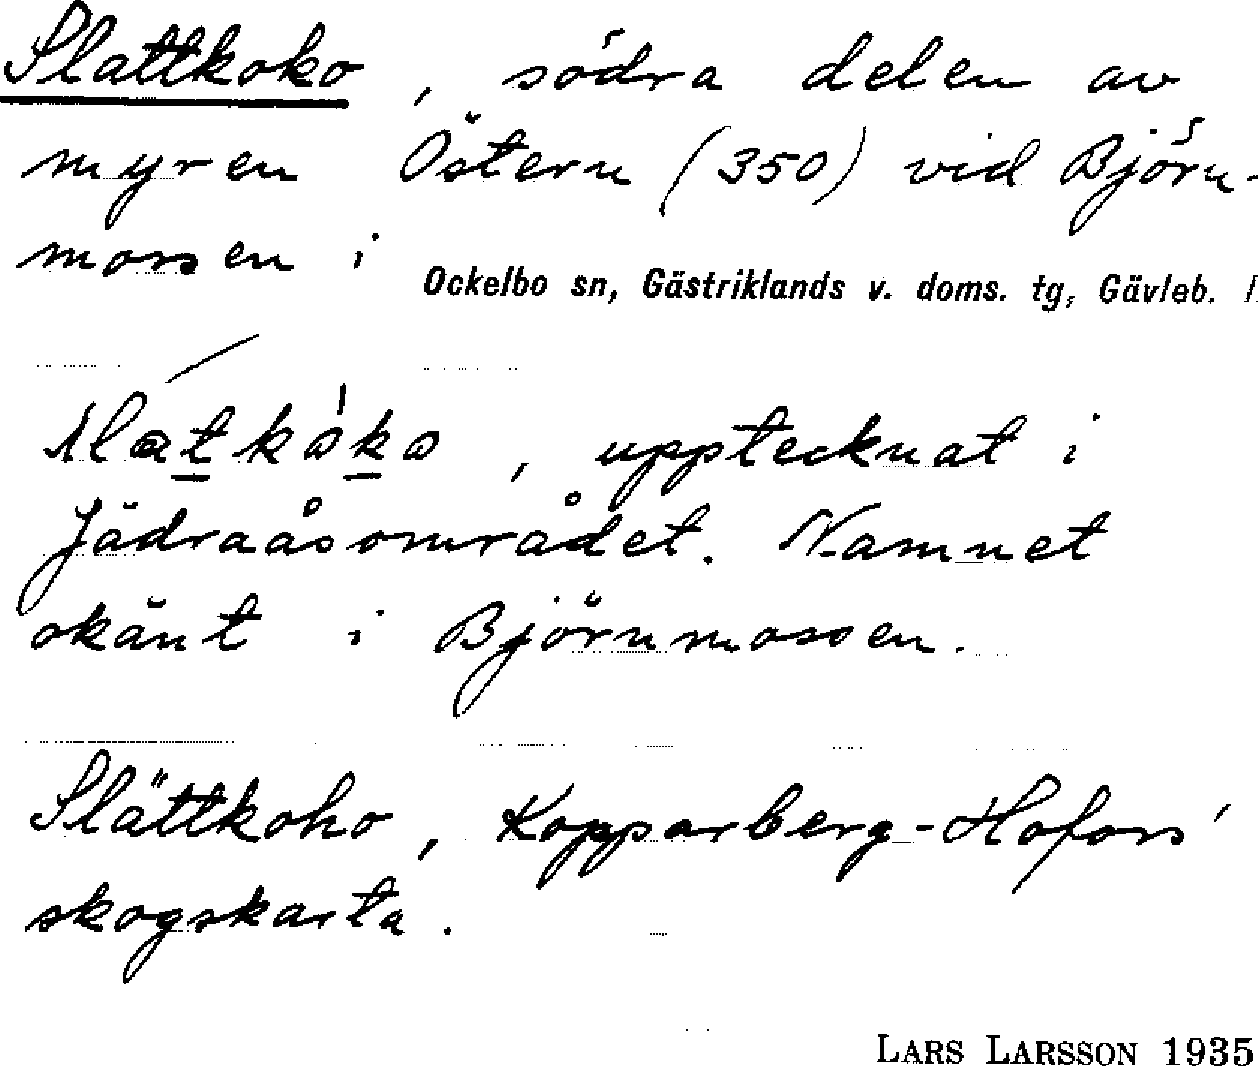 Slattkoko, södra delen av
myren Östern (350) vid Björn-
mossen i
Ockelbo sn, Gästriklands v. doms. tg, Gävleb. l.
upptecknat i
Jädraåsområdet. Namnet
okänt i Björnmossen.
Slättkoho, Kopparberg-Hofors'
skogskarta.
LARS LARSSON 1935